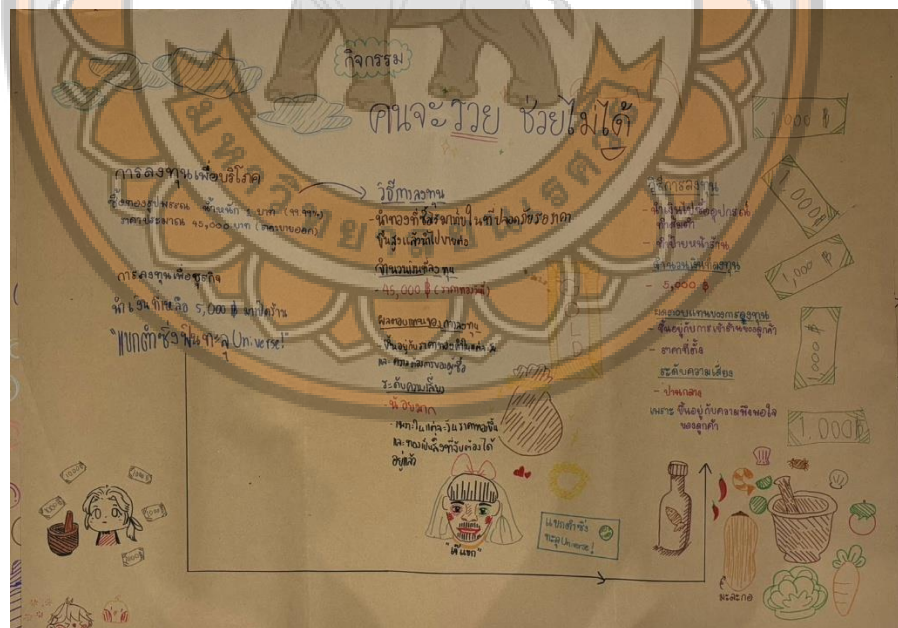 กิจกรรม
คนจะรวย ช่วยไม่ได้
การลงทุนเพื่อบริโภค
ซื้อทองรูปพรรณ น้ำหนัก 1 บาท
ราคาประมาณ 45,000 บาท
การลงทุนเพื่อธุรกิจ
นำเงินที่เหลือ 5,000 ฿ มาเปิดร้าน
"แขกตำซิ่ง ฟินทะลุ Universe!"
วิธีการลงทุน
- นำทองที่ซื้อมา
ขึ้นสูงแล้วนำไปขายต่อ
จำนวนเงินที่ลงทุน
- 45,000 ฿
ผลตอบแทนของการลงทุน
- ขึ้นอยู่กับราคาทองในแต่ละวัน
และความต้องการของผู้ซื้อ
ระดับความเสี่ยง
- น้อยมาก
- เพราะในแต่ละวันราคาทองขึ้น
และทองเป็นสิ่งที่จับต้องได้
อยู่แล้ว
วิธีการลงทุน
- นำเงินไปซื้ออุปกรณ์
ทำส้มตำ
- ทำป้ายหน้าร้าน
จำนวนเงินที่ลงทุน
- 5,000 ฿
ผลตอบแทนของการลงทุน
- ขึ้นอยู่กับการเข้าร้านของลูกค้า
- ราคาที่ตั้ง
ระดับความเสี่ยง
- ปานกลาง
เพราะ ขึ้นอยู่กับความพึงพอใจ
ของลูกค้า
1,000 ฿
1,000
1,000 ฿
1,000 ฿
1,000 ฿
"เจ๊แขก"
แขกตำซิ่ง
ทะลุ Universe!
มะละกอ
มหาวิทยาลัยนเรศวร